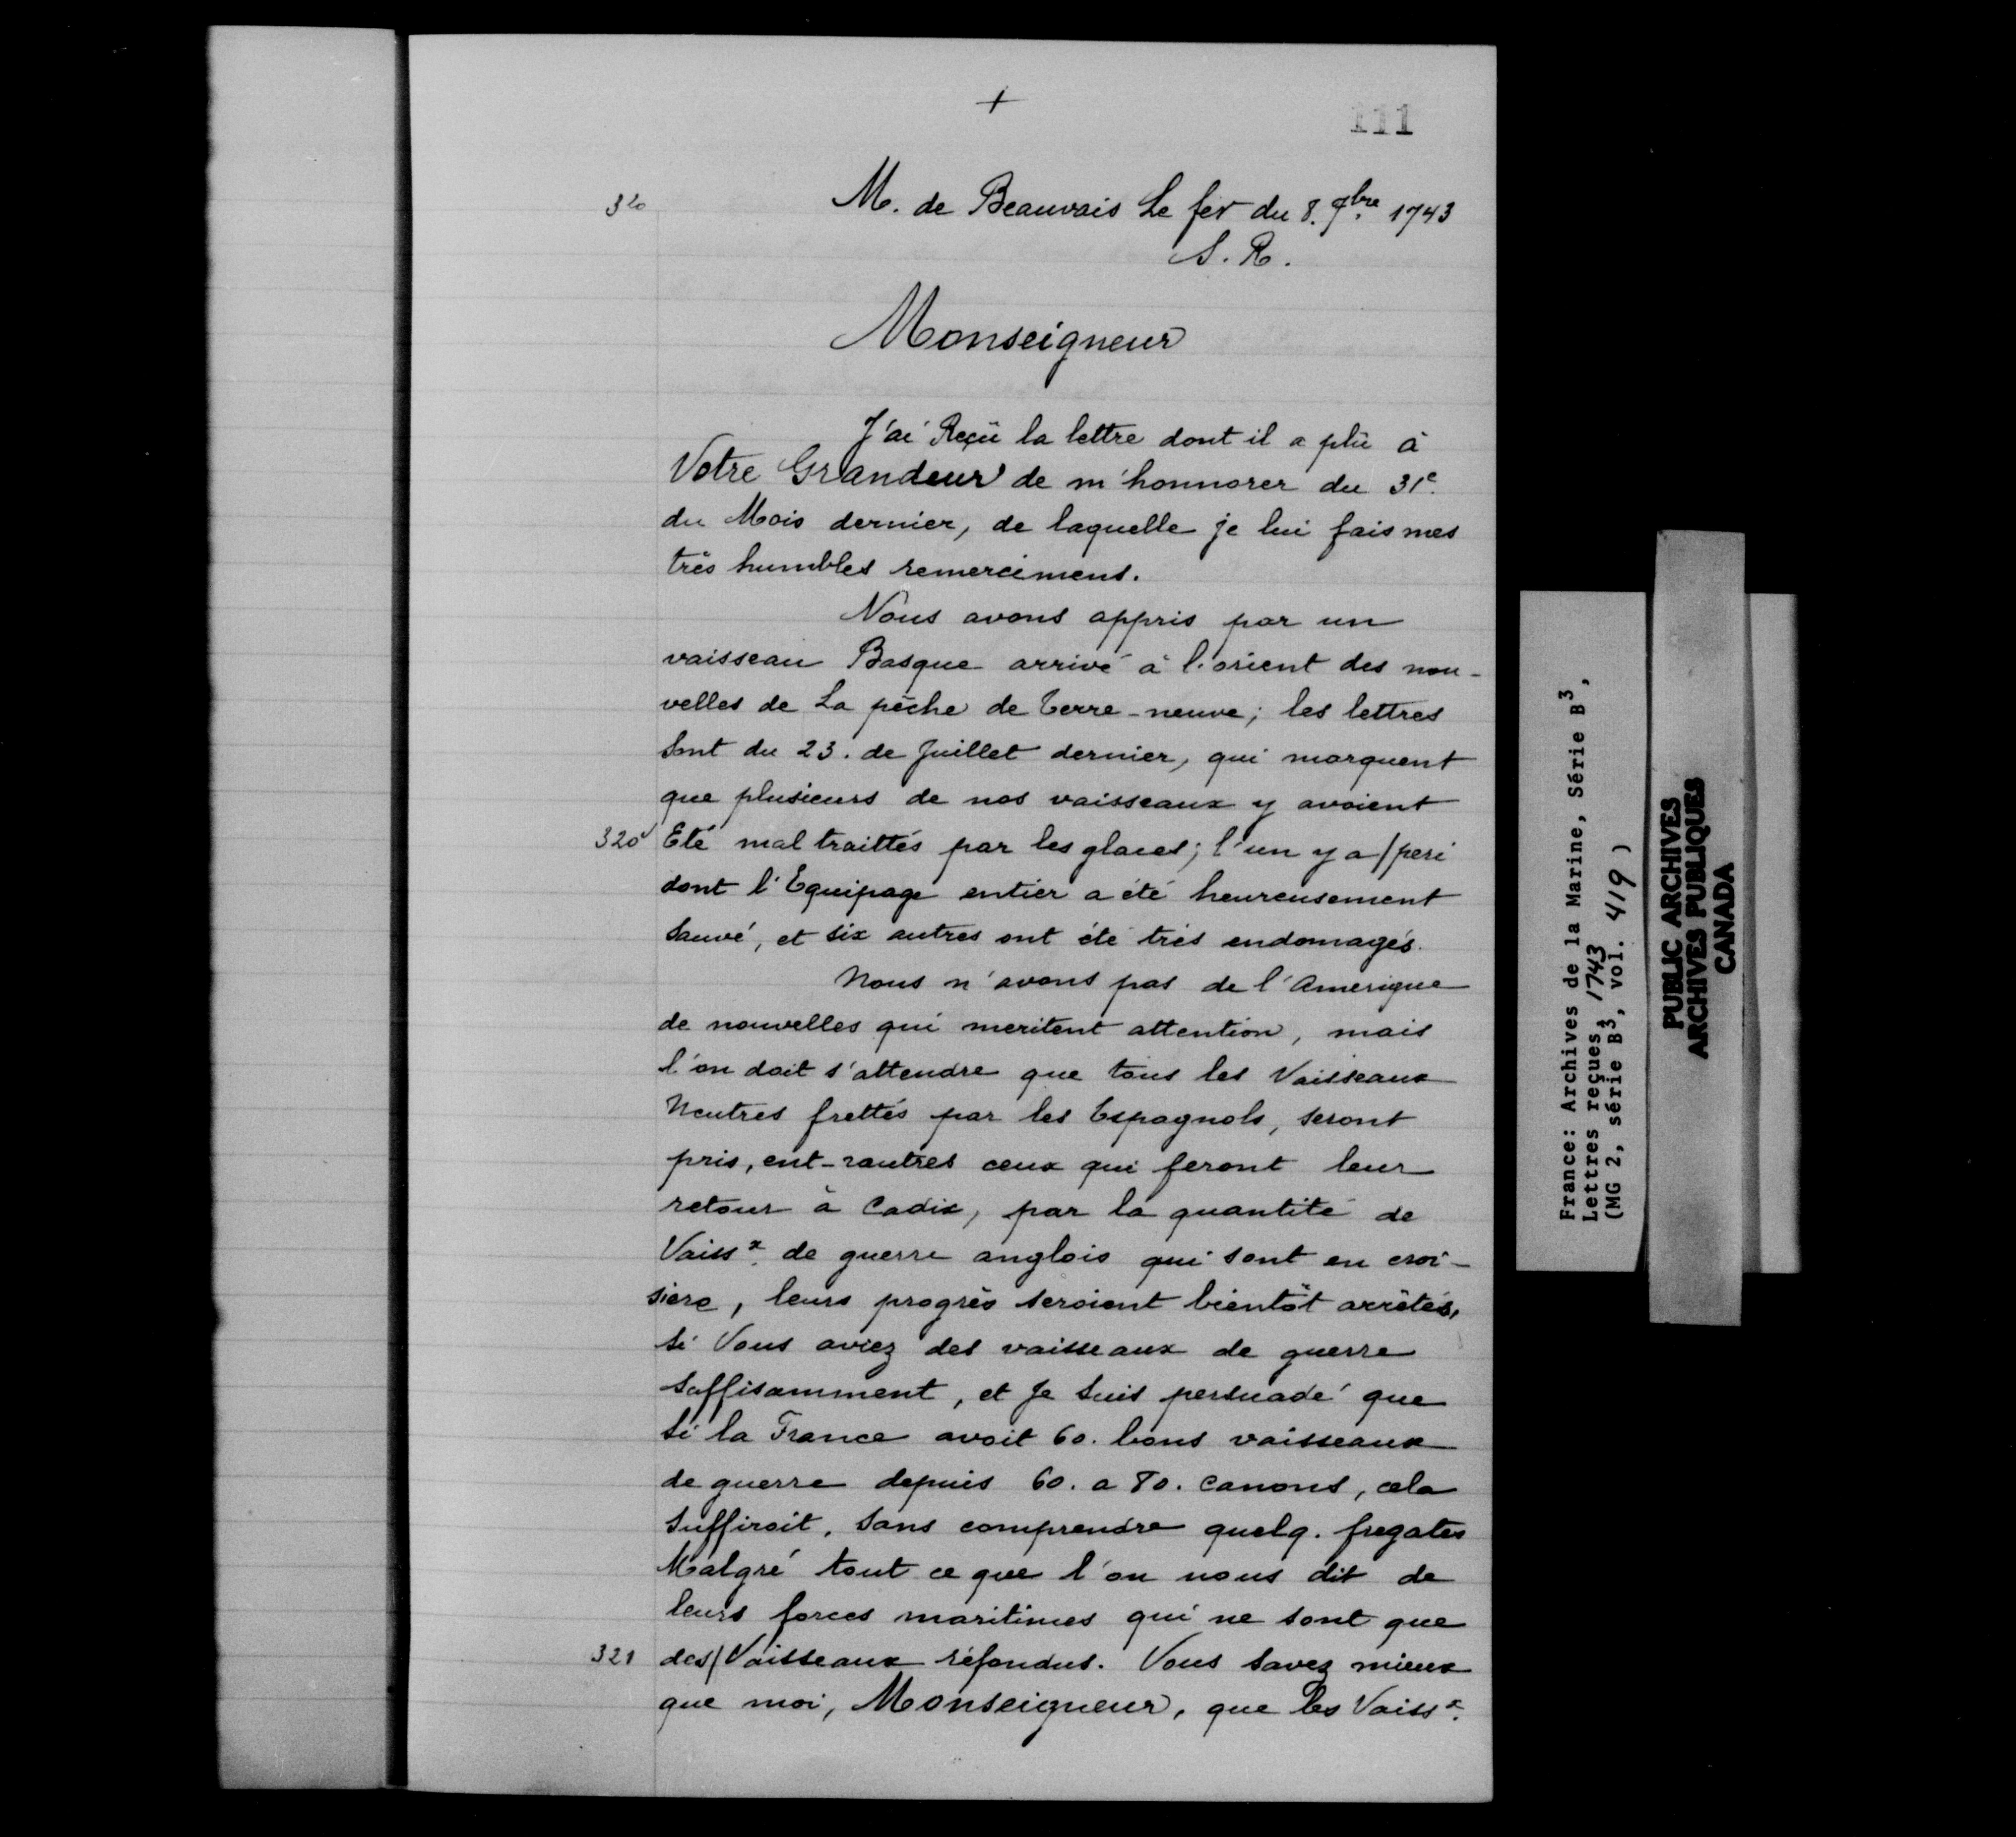 +
111
320
M. de Beauvais Le fer du 8. 9bre 1743
S. R.
Monseigneur
J'ai Reçû la lettre dont il a plû à
Votre Grandeur de m'honnorer du 31e.
du Mois dernier, de laquelle je lui fais mes
très humbles remerciments.
Nous avons appris par un
vaisseau Basque arrivé à l'orient des nou-
velles de La pêche de Terre-neuve; les lettres
sont du 23. de Juillet dernier, qui marquent
que plusieurs de nos vaisseaux y avoient
320v Eté mal traittés par les glaces; l'un y a/peri
dont l'Equipage entier a été heureusement
sauvé, et six autres ont été très endomagés.
Nous n'avons pas de l'Amerique
de nouvelles qui meritent attention, mais
l'on doit s'attendre que tous les Vaisseaux
Neutres frettés par les Espagnols, seront
pris, ent-rautres ceux qui feront leur
retour à Cadix, par la quantité de
Vaissx. de guerre anglois qui sont en croi-
siere, leurs progrès seroient bientôt arrêtés,
si Vous aviez des vaisseaux de guerre
suffisamment, et Je suis persuadé que
si la France avoit 60. bons vaisseaux
de guerre depuis 60. a 80. canons, cela
suffiroit, sans comprendre quelq. fregates
Malgré tout ce que l'on nous dit de
leurs forces maritimes qui ne sont que
321 des/Vaisseaux réfondus. Vous savez mieux
que moi, Monseigneur, que les Vaissx.
France: Archives de la Marine, Série B3,
Lettres reçues, 1743
(MG 2, série B3, vol. 419)
PUBLIC ARCHIVES
ARCHIVES PUBLIQUES
CANADA